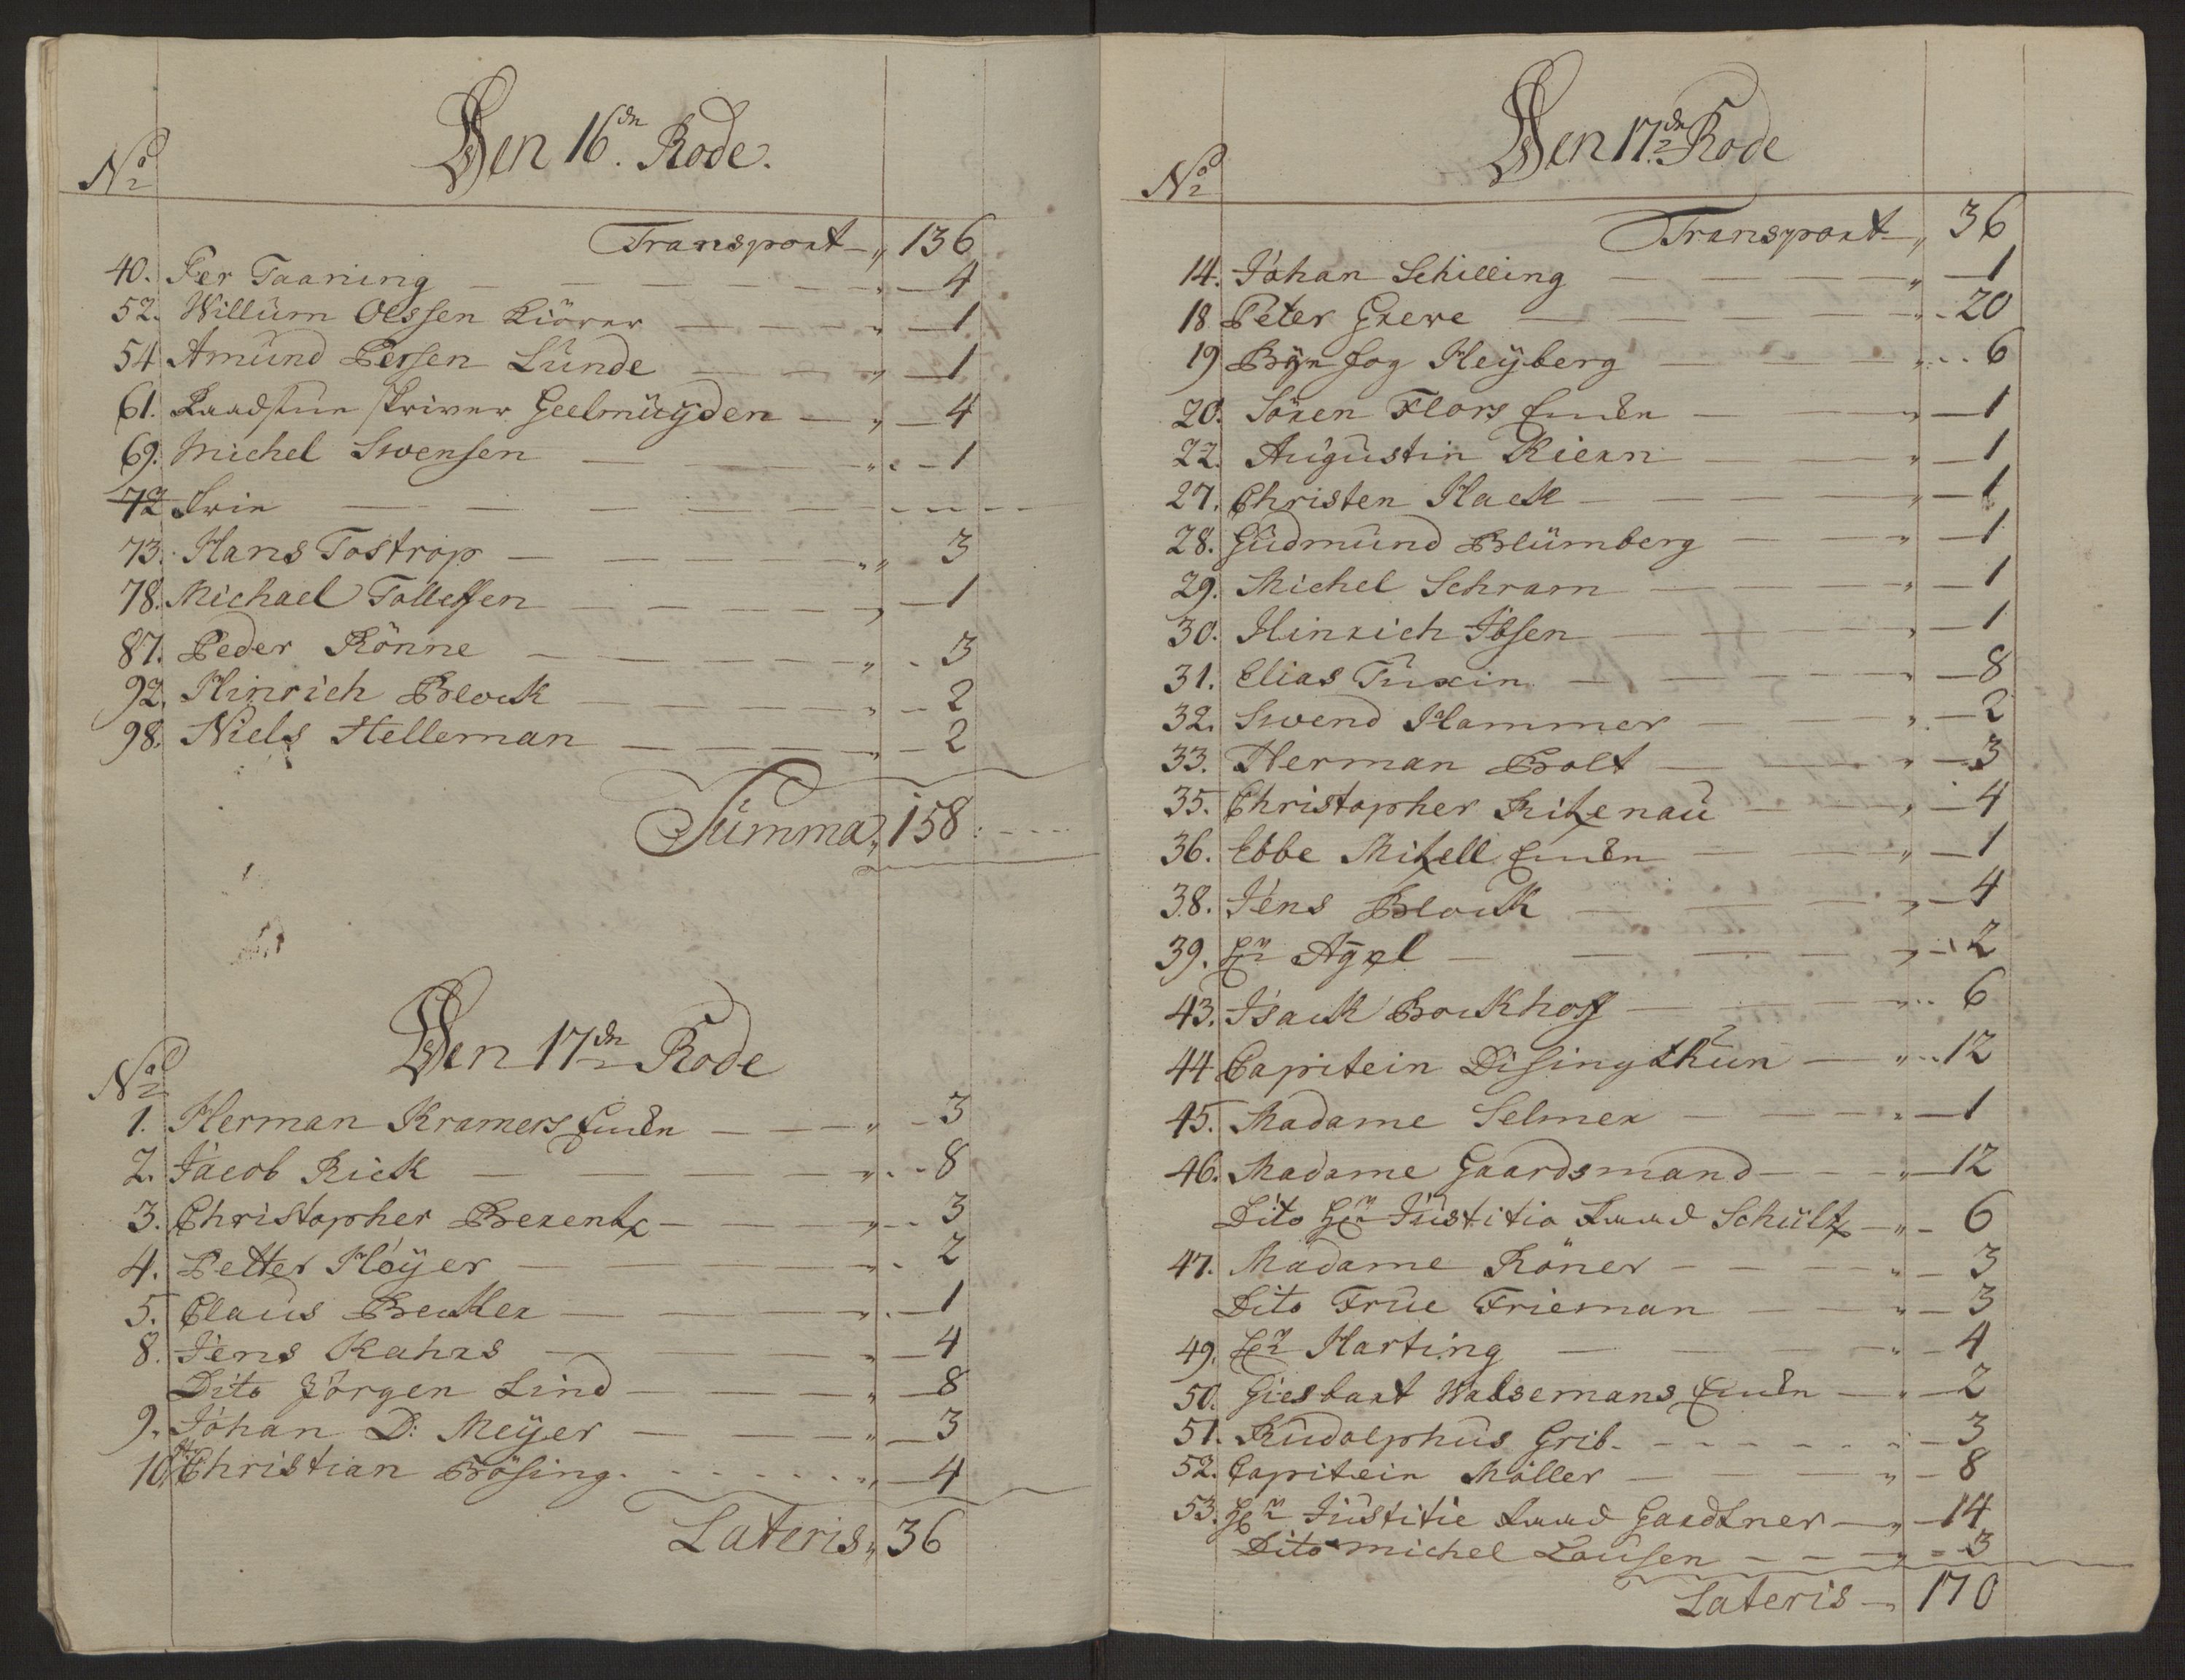 Den 16dn Rode.
No
Transport 136
40. Per Taaning 4
52. Willum Olssen Kiörer 1
54 Amund Perssen Lunde 1
61. Raadstue skriver Geelmuyden 4
69. Michel Svensen 1
72 Frie
73. Hans Tostrop 3
78. Michael Tollefsen 1
87. Peder Rönne 3
92. Hinrich Block 2
98. Niels Helleman 2
Summa 158
Den 17dn Rode
No
1. Herman Kramers Enken 3
2. Jacob Rick 8
3. Christopher Berentz 3
4. Petter Höyer 2
5. Claus Becker 1
8. Jens Rahrs 4
Dito Jörgen Lind 8
9. Johan D: Meyer 3
10. Christian Bösing 4
Lateris 36
Den 17dn Rode
No
Transport 36
14. Johan Schilling 1
18 Peter Grewe 20
19 Byefog Heyberg 6
20. Sören Flors Enken 1
22. Augustin Riern 1
27. Christen Hack 1
28. Gudmund Blumberg 1
29. Michel Schram 1
30. Hinrich Ibsen 1
31. Elias Tuxin 8
32. Swend Hammer 2
33. Herman Bolt 3
35. Christopher Ritzenau 4
36. Ebbe Mitzell Enken 1
38. Jens Block 4
39. Hr Appel 2
43. Isack Bockhoff 6
44 Capitein Disingthun 12
45. Madame Selmer 1
46. Madame Gaardsmand 12
Dito Hr Justitie Raad Schultz 6
47. Madame Röner 3
Dito Frue Frieman 3
49. Hr Harting 4
50. Giesbart Walsemans Enken 2
51. Rudolphus Grib 3
52. Capitein Möller 8
53. Hr Justitie Raad Gardtner 14
Dito michel Lousen 3
Lateris 170